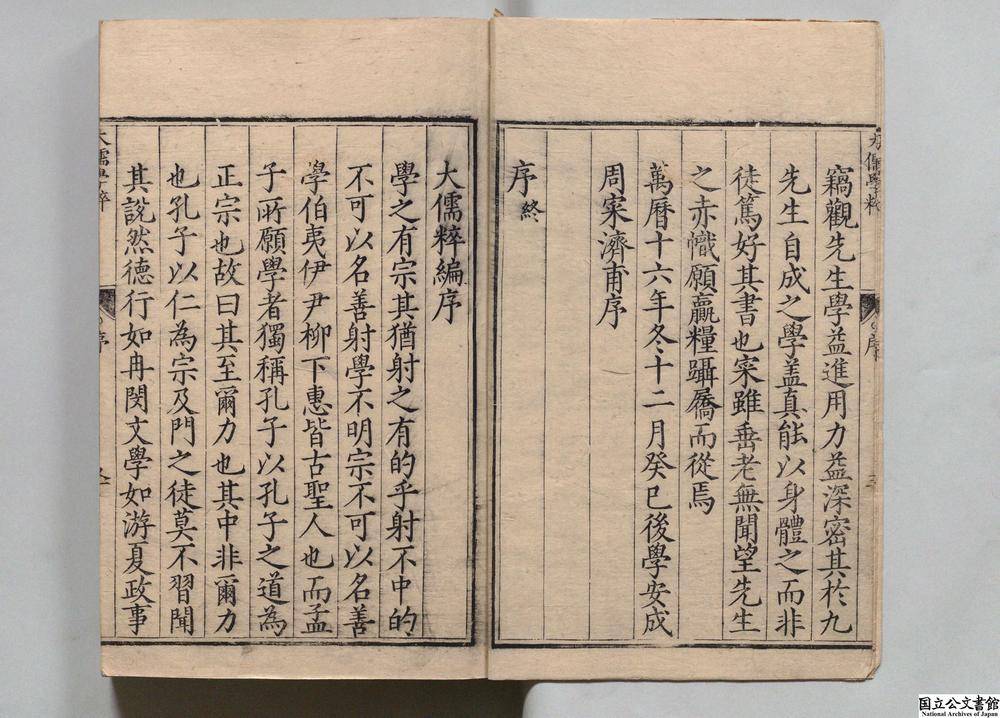 竊觀先生學益進用力益深密其於九
先生自成之學盖真能以身體之而非
徒篤好其書也寀雖垂老無聞望先生
之赤幟願贏糧躡屩而從焉
萬曆十六年冬十二月癸巳後學安成
周寀濟甫序
序終
大儒粹編序
學之有宗其猶射之有的乎射不中的
不可以名善射學不明宗不可以名善
學伯夷伊尹柳下惠皆古聖人也而孟
子所願學者獨稱孔子以孔子之道為
正宗也故曰其至爾力也其中非爾力
也孔子以仁為宗及門之徒莫不習聞
其說然德行如冉閔文學如游夏政事
大儒學粹
序
大儒學粹
序
国立公文書館
National Archives of Japan